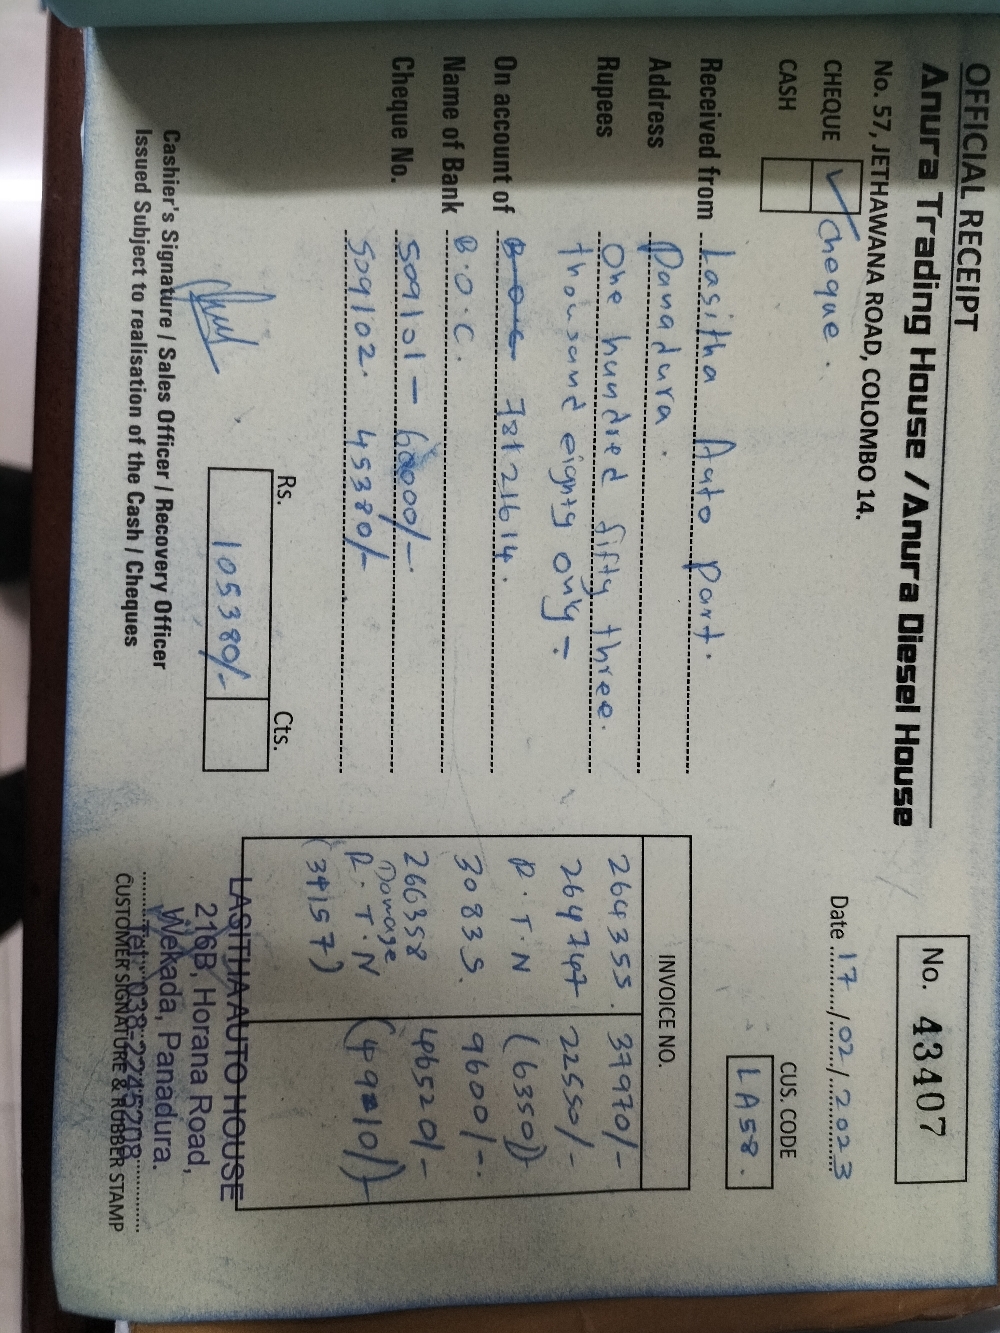 OFFICIAL RECEIPT
Anura Trading House / Anura Diesel House
No. 57, JETHAWANA ROAD, COLOMBO 14.
No. 43407
CHEQUE ✓ Cheque.
CASH
Date 17/02/2023
CUS. CODE
LA58.
Received from Lasitha Auto part.
Address Panadura.
Rupees One hundred fifty three.
thousand eighty only -
On account of 78121614.
Name of Bank B.O.C.
Cheque No. 509101 - 60000/-
509102. 45380/-
Rs. Cts.
105380/-
INVOICE NO.
264355. 37970/-
264747 22550/-
R.T.N (6350)
30835. 9600/-.
266358 46520/-
Damage
R.T.N
(34157)
Cashier's Signature / Sales Officer / Recovery Officer
Issued Subject to realisation of the Cash / Cheques
LASITHA AUTO HOUSE
216B, Horana Road,
Wekada, Panadura.
Tel: 038-2245208
CUSTOMER SIGNATURE & RUBBER STAMP